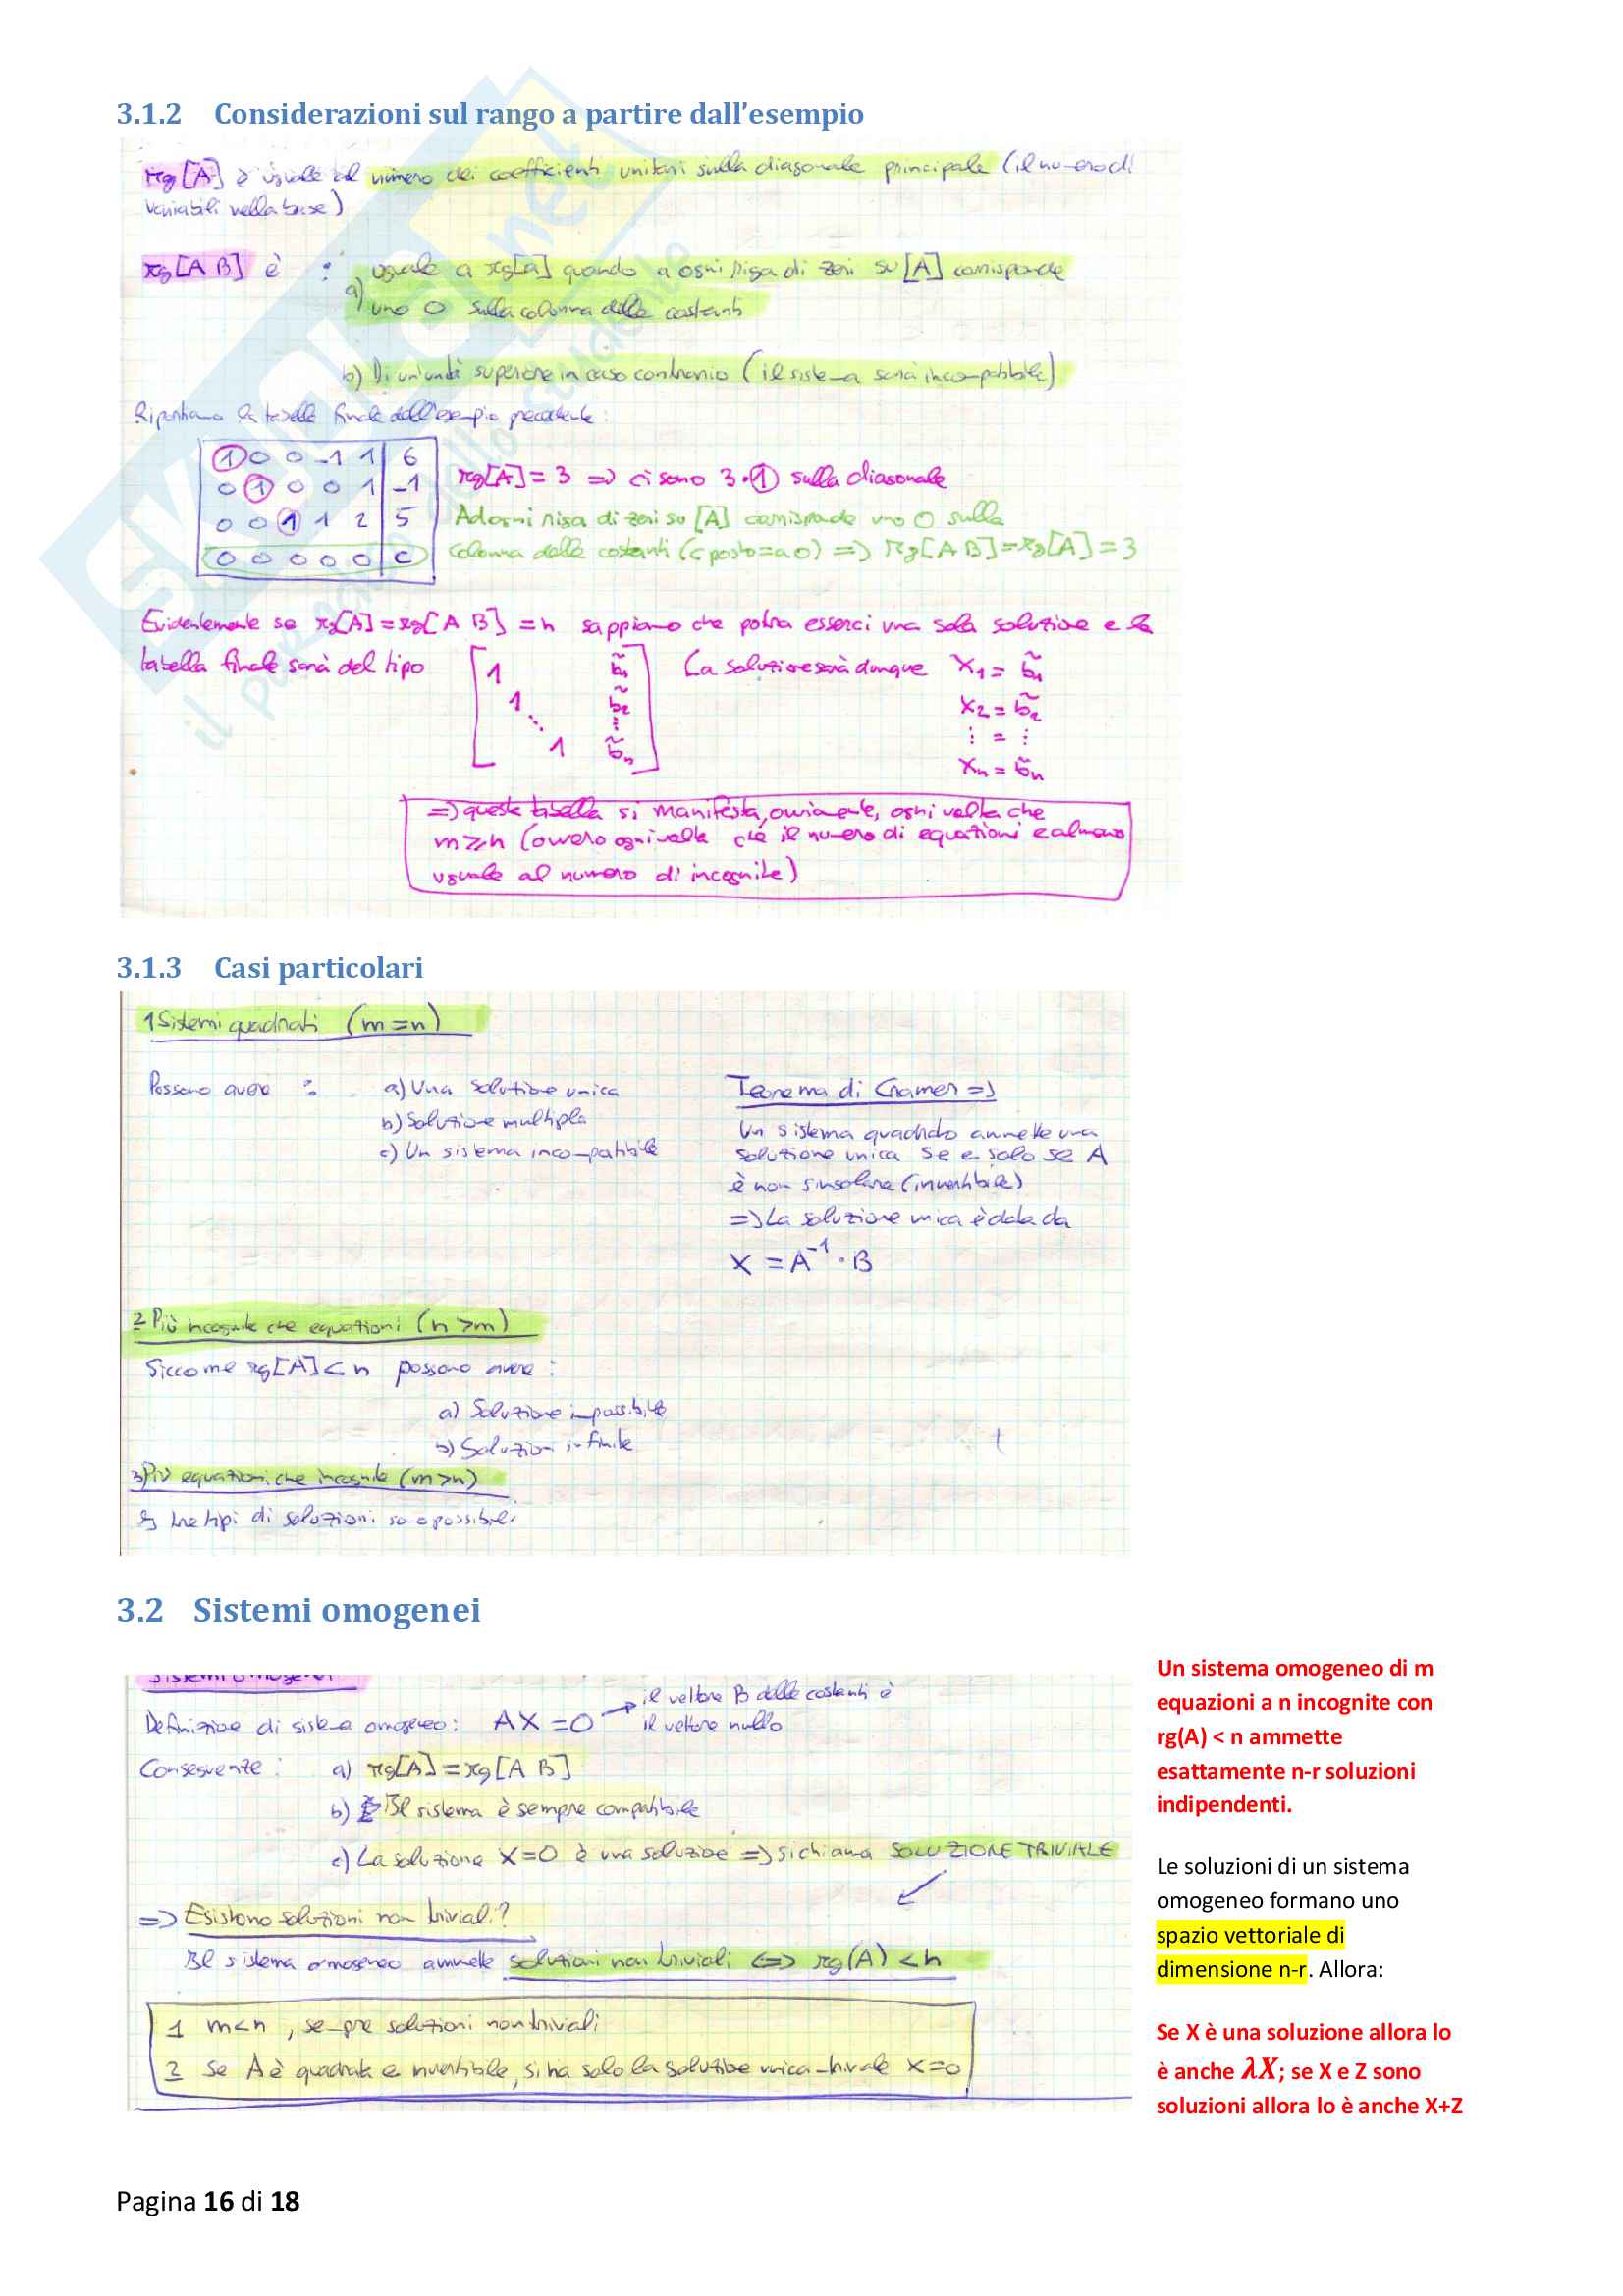 3.1.2 Considerazioni sul rango a partire dall'esempio
rg[A] è uguale al numero dei coefficienti unitari sulla diagonale principale (il numero di
variabili nella base)
rg[A B] è : uguale a rg[a] quando a ogni riga di zeri su [A] corrisponde
a) uno 0 sulla colonna delle costanti
b) Di un'unità superiore in caso contrario (il sistema sarà incompatibile)
Riportiamo la tabella finale dell'esempio precedente:
1 0 0 -1 1 | 6
0 1 0 0 1 | -1
0 0 1 1 2 | 5
0 0 0 0 0 | c
rg[A] = 3 => ci sono 3 · 1 sulla diagonale
Ad ogni riga di zeri su [A] corrisponde uno 0 sulla
colonna delle costanti (c posto = a 0) => rg[A B] = rg[A] = 3
Evidentemente se rg[A] = rg[A B] = n sappiamo che potrà esserci una sola soluzione e la
tabella finale sarà del tipo [1 b̃1 La soluzione sarà dunque x1 = b̃1
1 b̃2 x2 = b̃2
⋱ ⋮ ⋮ = ⋮
1 b̃n] xn = b̃n
=> questa tabella si manifesta, ovviamente, ogni volta che
m ≥ n (ovvero ogni volta che il numero di equazioni è almeno
uguale al numero di incognite)
3.1.3 Casi particolari
1 Sistemi quadrati (m = n)
Possono avere : a) Una soluzione unica
b) Soluzione multipla
c) Un sistema incompatibile
Teorema di Cramer =>
Un sistema quadrato ammette una
soluzione unica se e solo se A
è non singolare (invertibile)
=> La soluzione unica è data da
X = A⁻¹ · B
2 Più incognite che equazioni (n > m)
Siccome rg[A] < n possono avere :
a) Soluzione impossibile
b) Soluzioni infinite
3 Più equazioni che incognite (m > n)
tre tipi di soluzioni sono possibili
3.2 Sistemi omogenei
Sistemi omogenei
Definizione di sistema omogeneo: AX = 0 → il vettore B delle costanti è
il vettore nullo
Conseguenze : a) rg[A] = rg[A B]
b) Il sistema è sempre compatibile
c) La soluzione X = 0 è una soluzione => si chiama SOLUZIONE TRIVIALE
=> Esistono soluzioni non triviali?
Il sistema omogeneo ammette soluzioni non triviali <=> rg(A) < n
1 m < n, sempre soluzioni non triviali
2 Se A è quadrata e invertibile, si ha solo la soluzione unica-triviale x = 0
Un sistema omogeneo di m
equazioni a n incognite con
rg(A) < n ammette
esattamente n-r soluzioni
indipendenti.
Le soluzioni di un sistema
omogeneo formano uno
spazio vettoriale di
dimensione n-r. Allora:
Se X è una soluzione allora lo
è anche λX; se X e Z sono
soluzioni allora lo è anche X+Z
Pagina 16 di 18
SKUOLA.net